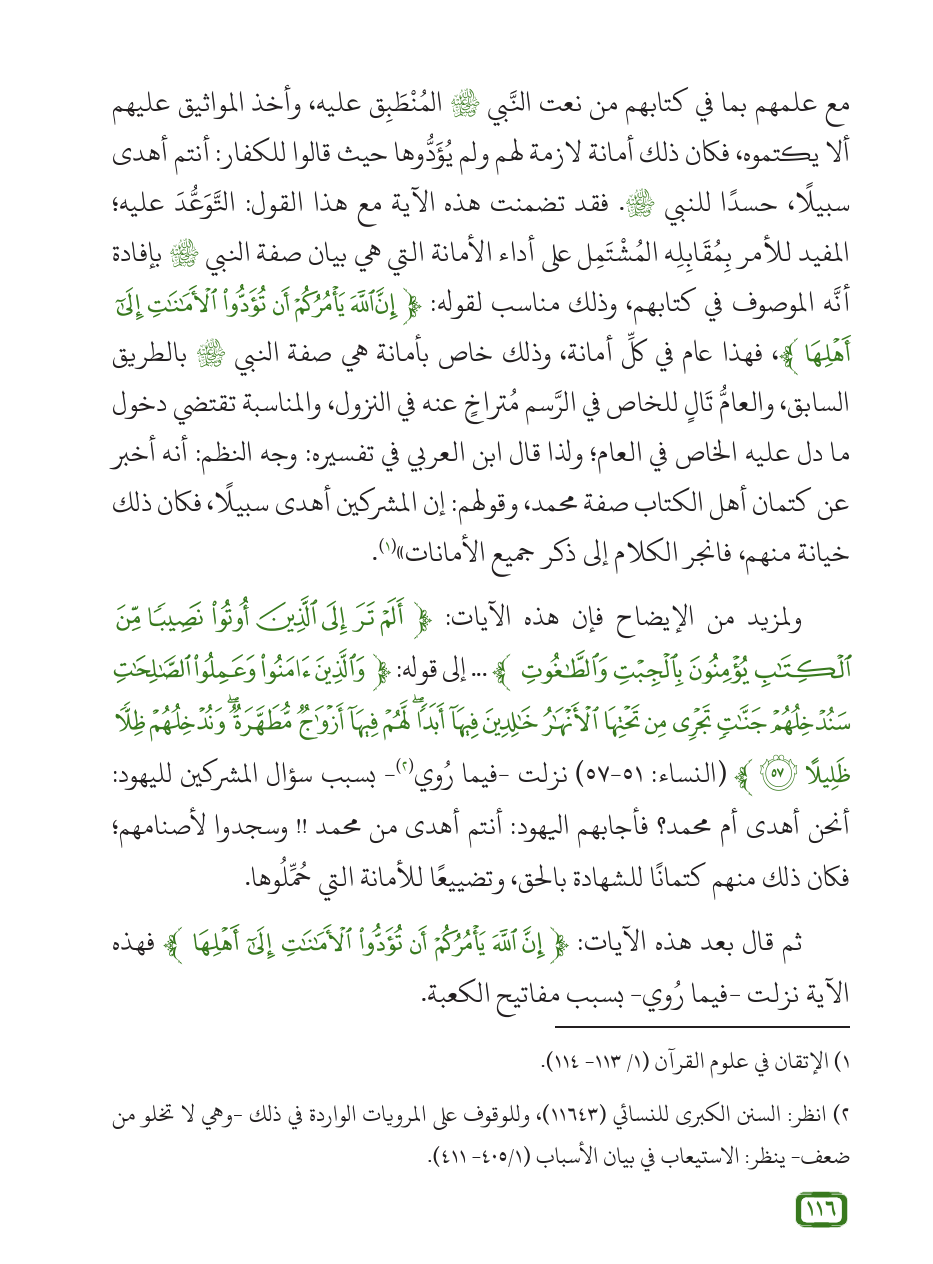 مع علمهم بما في كتابهم من نعت النَّبي ﷺ المُنْطَبِق عليه، وأخذ المواثيق عليهم
ألا يكتموه، فكان ذلك أمانة لازمة لهم ولم يُؤَدُّوها حيث قالوا للكفار: أنتم أهدى
سبيلًا، حسدًا للنبي ﷺ. فقد تضمنت هذه الآية مع هذا القول: التَّوَعُّدَ عليه؛
المفيد للأمر بِمُقَابِلِه المُشْتَمِل على أداء الأمانة التي هي بيان صفة النبي ﷺ بإفادة
أنَّه الموصوف في كتابهم، وذلك مناسب لقوله: ﴿ إِنَّ ٱللَّهَ يَأْمُرُكُمْ أَن تُؤَدُّوا۟ ٱلْأَمَٰنَٰتِ إِلَىٰٓ
أَهْلِهَا ﴾، فهذا عام في كلِّ أمانة، وذلك خاص بأمانة هي صفة النبي ﷺ بالطريق
السابق، والعامُّ تَالٍ للخاص في الرَّسم مُتراخٍ عنه في النزول، والمناسبة تقتضي دخول
ما دل عليه الخاص في العام؛ ولذا قال ابن العربي في تفسيره: وجه النظم: أنه أخبر
عن كتمان أهل الكتاب صفة محمد، وقولهم: إن المشركين أهدى سبيلًا، فكان ذلك
خيانة منهم، فانجر الكلام إلى ذكر جميع الأمانات»(١).
ولمزيد من الإيضاح فإن هذه الآيات: ﴿ أَلَمْ تَرَ إِلَى ٱلَّذِينَ أُوتُوا۟ نَصِيبًا مِّنَ
ٱلْكِتَٰبِ يُؤْمِنُونَ بِٱلْجِبْتِ وَٱلطَّٰغُوتِ ﴾... إلى قوله: ﴿ وَٱلَّذِينَ ءَامَنُوا۟ وَعَمِلُوا۟ ٱلصَّٰلِحَٰتِ
سَنُدْخِلُهُمْ جَنَّٰتٍ تَجْرِى مِن تَحْتِهَا ٱلْأَنْهَٰرُ خَٰلِدِينَ فِيهَآ أَبَدًا ۖ لَّهُمْ فِيهَآ أَزْوَٰجٌ مُّطَهَّرَةٌ ۖ وَنُدْخِلُهُمْ ظِلًّا
ظَلِيلًا ٥٧ ﴾ (النساء: ٥١-٥٧) نزلت -فيما رُوي(٢)- بسبب سؤال المشركين لليهود:
أنحن أهدى أم محمد؟ فأجابهم اليهود: أنتم أهدى من محمد !! وسجدوا لأصنامهم؛
فكان ذلك منهم كتمانًا للشهادة بالحق، وتضييعًا للأمانة التي حُمِّلُوها.
ثم قال بعد هذه الآيات: ﴿ إِنَّ ٱللَّهَ يَأْمُرُكُمْ أَن تُؤَدُّوا۟ ٱلْأَمَٰنَٰتِ إِلَىٰٓ أَهْلِهَا ﴾ فهذه
الآية نزلت -فيما رُوي- بسبب مفاتيح الكعبة.
١) الإتقان في علوم القرآن (١/ ١١٣- ١١٤).
٢) انظر: السنن الكبرى للنسائي (١١٦٤٣)، وللوقوف على المرويات الواردة في ذلك -وهي لا تخلو من
ضعف- ينظر: الاستيعاب في بيان الأسباب (٤٠٥/١- ٤١١).
١١٦